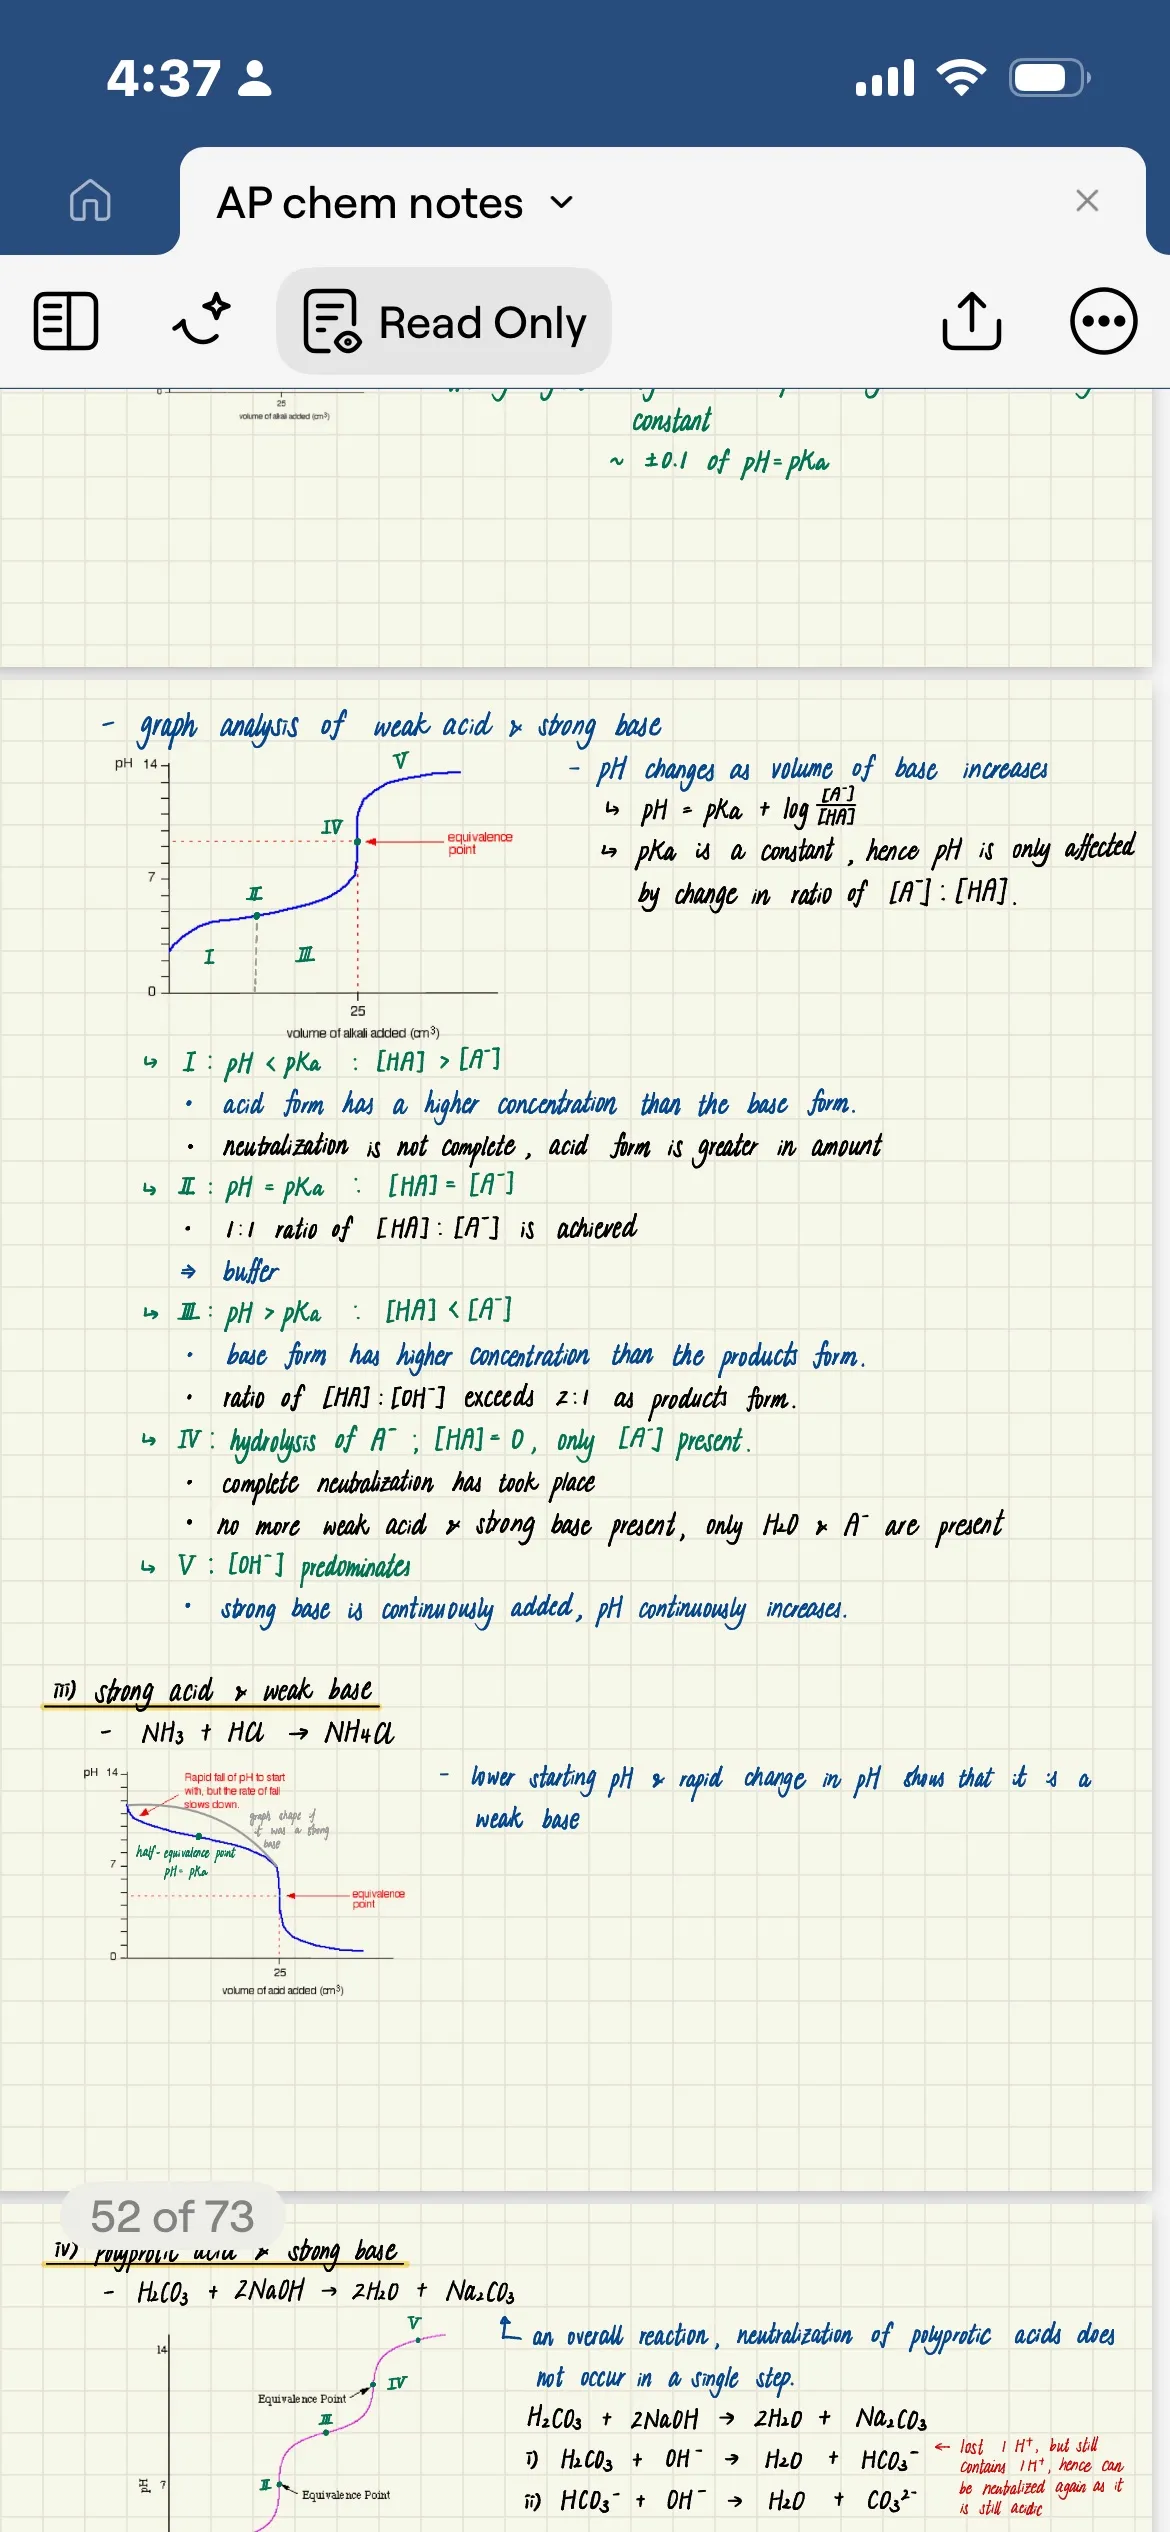 4:37
AP chem notes
Read Only
0
25
volume of alkali added (cm³)
constant
~ ±0.1 of pH=pKa
- graph analysis of weak acid & strong base
pH 14
V
IV
equivalence
point
7
II
I
III
0
25
volume of alkali added (cm³)
- pH changes as volume of base increases
↳ pH = pKa + log [A⁻]/[HA]
↳ pKa is a constant, hence pH is only affected
by change in ratio of [A⁻]:[HA].
↳ I : pH < pKa : [HA] > [A⁻]
• acid form has a higher concentration than the base form.
• neutralization is not complete, acid form is greater in amount
↳ II : pH = pKa : [HA] = [A⁻]
• 1:1 ratio of [HA]:[A⁻] is achieved
⇒ buffer
↳ III : pH > pKa : [HA] < [A⁻]
• base form has higher concentration than the products form.
• ratio of [HA]:[OH⁻] exceeds 2:1 as products form.
↳ IV : hydrolysis of A⁻ ; [HA]= 0, only [A⁻] present.
• complete neutralization has took place
• no more weak acid & strong base present, only H₂O & A⁻ are present
↳ V : [OH⁻] predominates
• strong base is continuously added, pH continuously increases.
iii) strong acid & weak base
- NH₃ + HCl → NH₄Cl
pH 14
Rapid fall of pH to start
with, but the rate of fall
slows down.
graph shape if
it was a strong
base
half-equivalence point
pH= pKa
7
equivalence
point
0
25
volume of acid added (cm³)
- lower starting pH & rapid change in pH shows that it is a
weak base
52 of 73
iv) polyprotic acid & strong base
- H₂CO₃ + 2NaOH → 2H₂O + Na₂CO₃
14
V
Equivalence Point
IV
III
pH 7
II
Equivalence Point
an overall reaction, neutralization of polyprotic acids does
not occur in a single step.
H₂CO₃ + 2NaOH → 2H₂O + Na₂CO₃
i) H₂CO₃ + OH⁻ → H₂O + HCO₃⁻
ii) HCO₃⁻ + OH⁻ → H₂O + CO₃²⁻
← lost 1 H⁺, but still
contains 1H⁺, hence can
be neutralized again as it
is still acidic